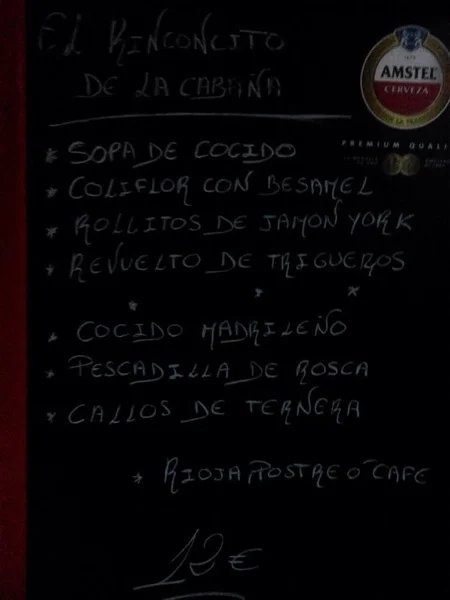 EL RINCONCITO
DE LA CABAÑA
AMSTEL
CERVEZA
PREMIUM QUALI
* SOPA DE COCIDO
* COLIFLOR CON BESAMEL
* ROLLITOS DE JAMON YORK
* REVUELTO DE TRIGUEROS
* * *
* COCIDO MADRILEÑO
* PESCADILLA DE ROSCA
* CALLOS DE TERNERA
* RIOJA, POSTRE O CAFE
12€